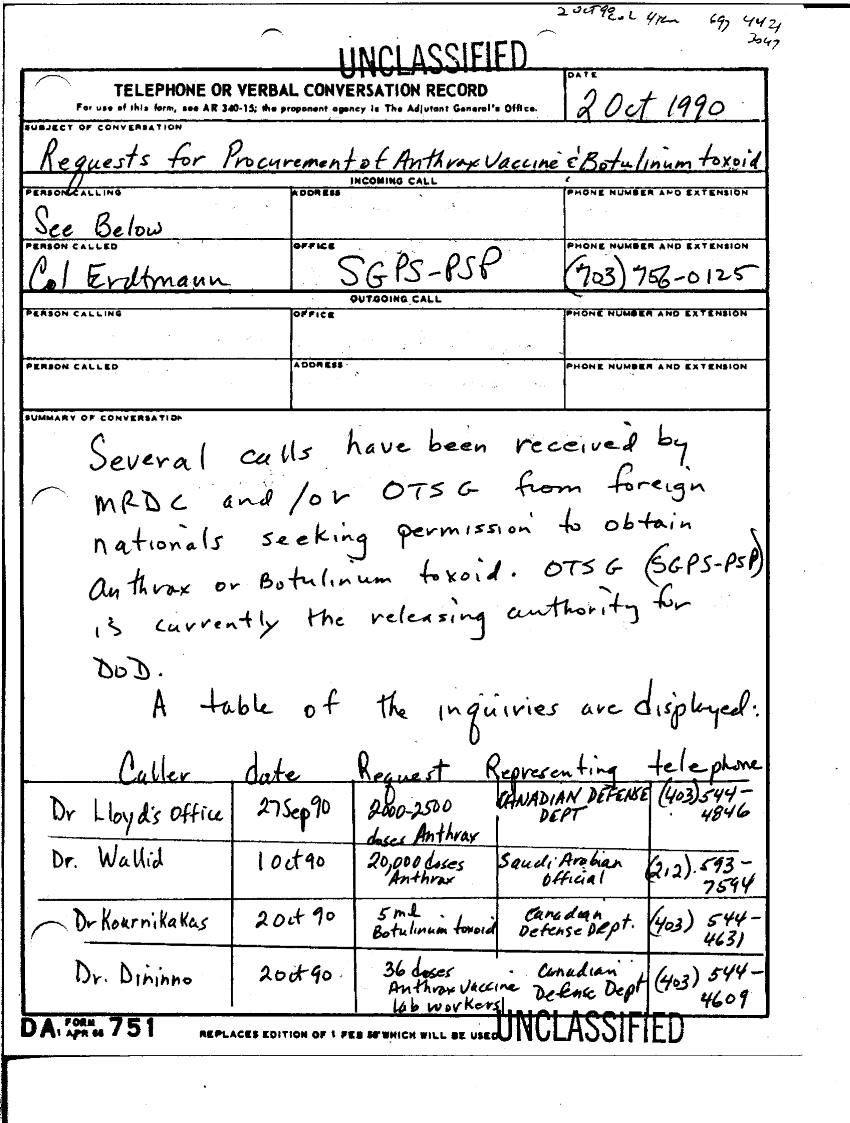 2 Oct 90
UNCLASSIFIED
TELEPHONE OR VERBAL CONVERSATION RECORD
For use of this form, see AR 340-15; the proponent agency is The Adjutant General's Office.
DATE
2 Oct 1990
SUBJECT OF CONVERSATION
Requests for Procurement of Anthrax Vaccine & Botulinum toxoid
INCOMING CALL
PERSON CALLING
ADDRESS
PHONE NUMBER AND EXTENSION
See Below
PERSON CALLED
OFFICE
PHONE NUMBER AND EXTENSION
Col Erdtmann
SGPS-PSP
(703) 756-0125
OUTGOING CALL
PERSON CALLING
OFFICE
PHONE NUMBER AND EXTENSION
PERSON CALLED
ADDRESS
PHONE NUMBER AND EXTENSION
SUMMARY OF CONVERSATION
Several calls have been received by
MRDC and /or OTSG from foreign
nationals seeking permission to obtain
Anthrax or Botulinum toxoid. OTSG (SGPS-PSP)
is currently the releasing authority for
DoD.
A table of the inquiries are displayed:
Caller date Request Representing telephone
Dr Lloyd's Office 27 Sep 90 2000-2500 doses Anthrax CANADIAN DEFENSE DEPT (403) 544-4846
Dr. Wallid 1 Oct 90 20,000 doses Anthrax Saudi Arabian Official (212) 593-7594
Dr Kournikakas 2 Oct 90 5 ml Botulinum toxoid Canadian Defense Dept. (403) 544-4631
Dr. Dininno 2 Oct 90 36 doses Anthrax Vaccine lab workers Canadian Defense Dept (403) 544-4609
DA FORM 1 APR 66 751
REPLACES EDITION OF 1 FEB 58 WHICH WILL BE USED
UNCLASSIFIED